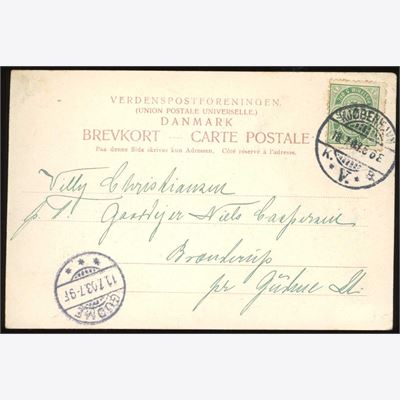 VERDENSPOSTFORENINGEN.
(UNION POSTALE UNIVERSELLE.)
DANMARK
BREVKORT — CARTE POSTALE
Paa denne Side skrives kun Adressen. Côté réservé à l'adresse.
KJØBENHAVN
K. V. B.
Villy Christiansen
p. T. Gaardejer Niels Caspersen
Brænderup
pr Gudme St.
11.7.03.7-9F
GUDME